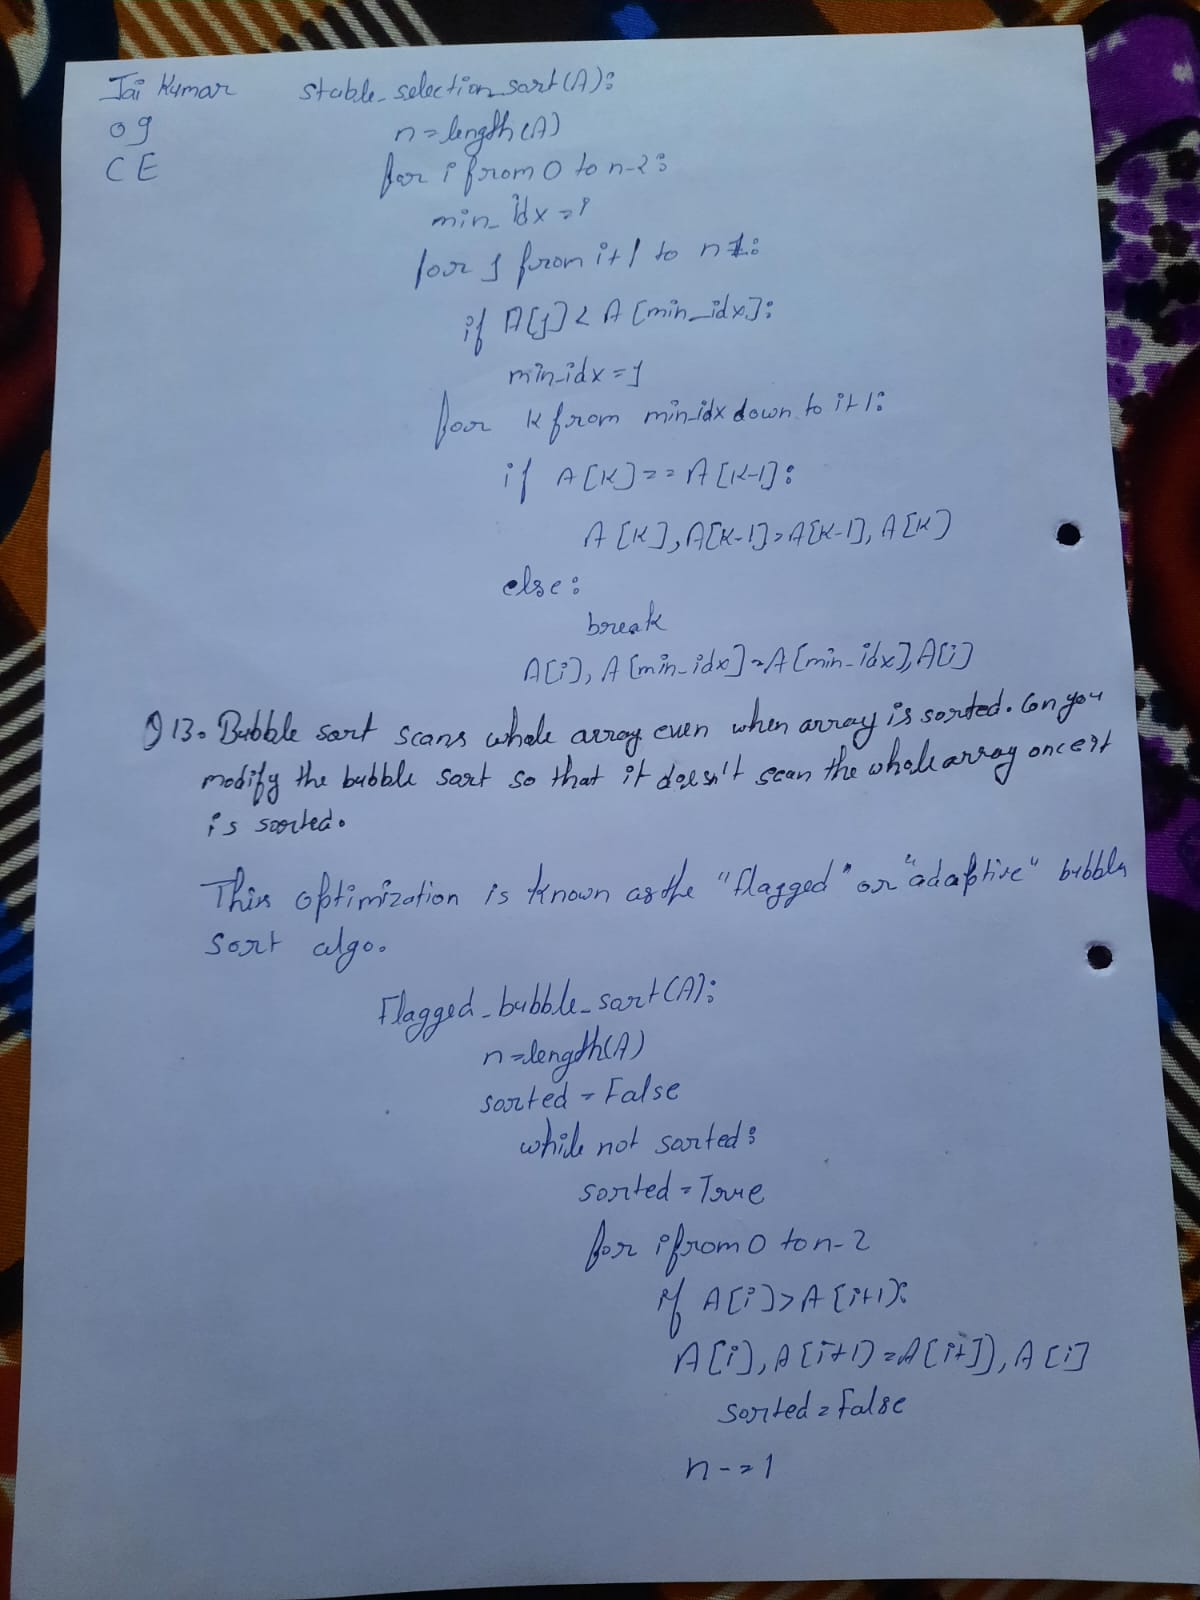 Jai Kumar
09
CE
stable_selection_sort(A):
n=length(A)
for i from 0 to n-2:
min_idx=i
for j from i+1 to n-1:
if A[j] < A[min_idx]:
min_idx=j
for k from min_idx down to i+1:
if A[k]==A[k-1]:
A[k],A[k-1]=A[k-1],A[k]
else:
break
A[i],A[min_idx]=A[min_idx],A[i]
Q13. Bubble sort scans whole array even when array is sorted. Can you
modify the bubble sort so that it doesn't scan the whole array once it
is sorted.
This optimization is known as the "flagged" or "adaptive" bubble
sort algo.
Flagged_bubble_sort(A):
n=length(A)
sorted=False
while not sorted:
sorted=True
for i from 0 to n-2
if A[i]>A[i+1]:
A[i],A[i+1]=A[i+1],A[i]
sorted=False
n-=1